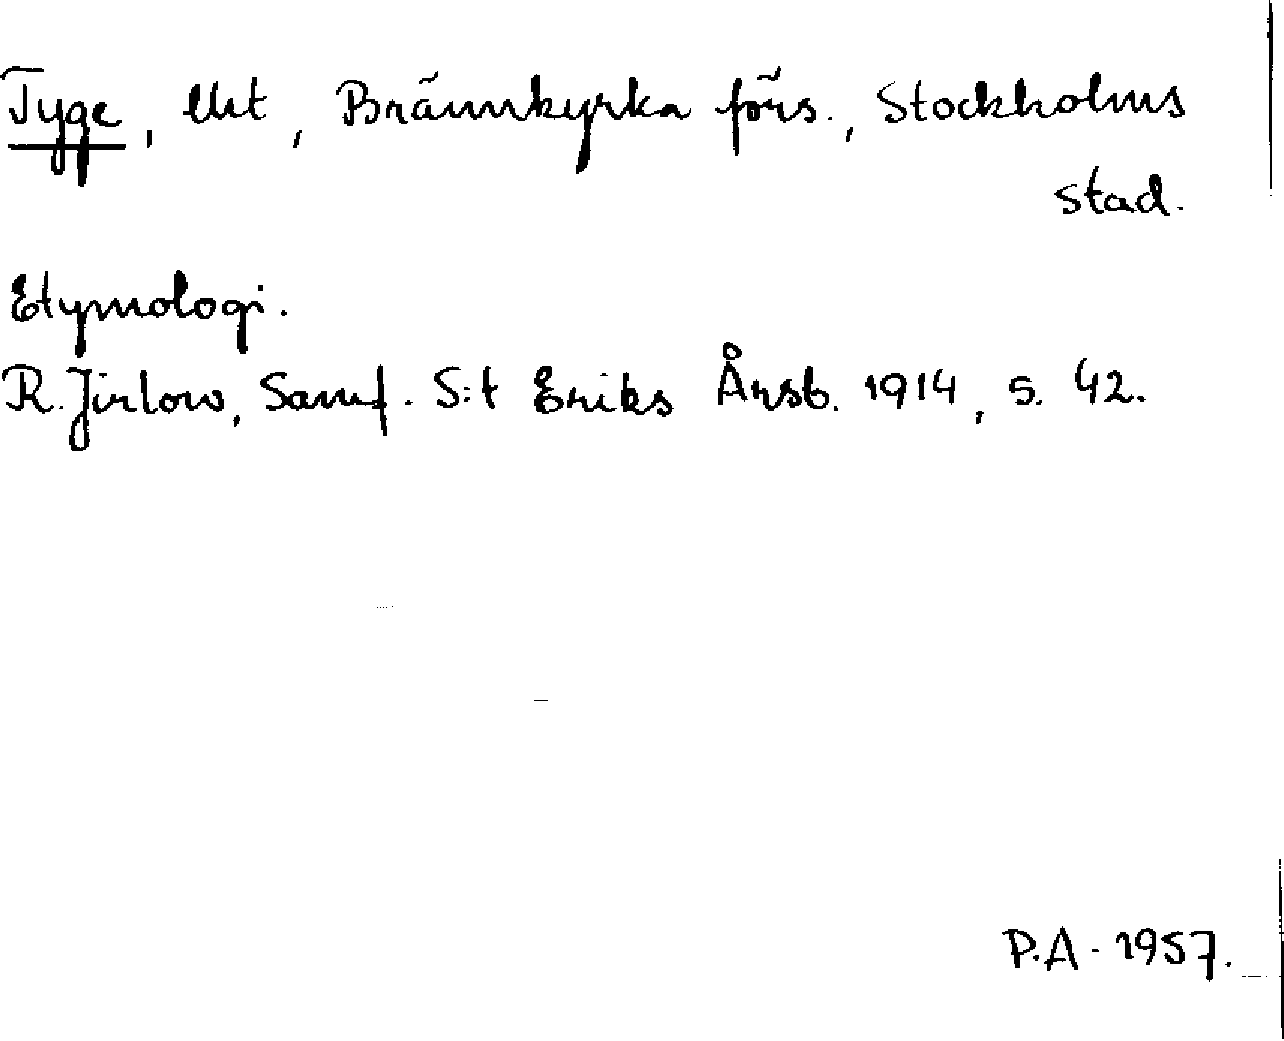 Tyge, lht, Brännkyrka förs., Stockholms
stad.
Etymologi.
R. Jirlow, Samf. S:t Eriks Årsb. 1914, s. 42.
P.A. 1957.